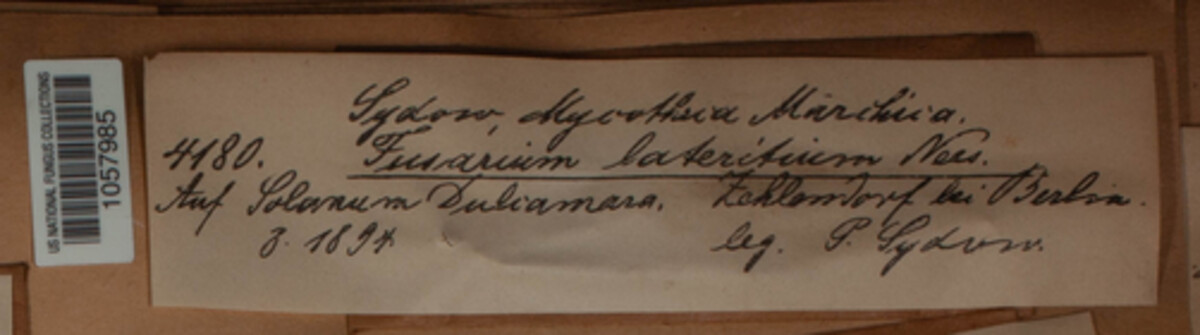 US NATIONAL FUNGUS COLLECTIONS
1057985
Sydow, Mycotheca Marchica.
4180. Fusarium lateritium Nees.
Auf Solanum Dulcamara. Zehlendorf bei Berlin.
3. 1894 leg. P. Sydow.